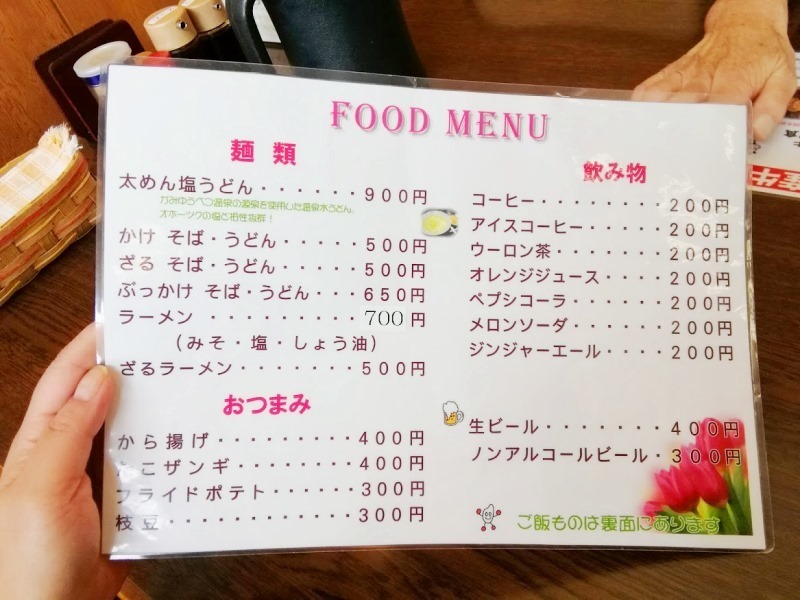 FOOD MENU
麺 類
太めん塩うどん・・・・・・９００円
かみゆうべつ温泉の源泉を使用した温泉水うどん。
オホーツクの塩と相性抜群！
かけ そば・うどん・・・・・５００円
ざる そば・うどん・・・・・５００円
ぶっかけ そば・うどん・・・６５０円
ラーメン ・・・・・・・・・700 円
（みそ・塩・しょう油）
ざるラーメン・・・・・・・５００円
おつまみ
から揚げ・・・・・・・・・４００円
たこザンギ・・・・・・・・４００円
フライドポテト・・・・・・３００円
枝豆・・・・・・・・・・・３００円
飲み物
コーヒー・・・・・・・・・２００円
アイスコーヒー・・・・・・２００円
ウーロン茶・・・・・・・・２００円
オレンジジュース・・・・・２００円
ペプシコーラ・・・・・・・２００円
メロンソーダ・・・・・・・２００円
ジンジャーエール・・・・・２００円
生ビール・・・・・・・・４００円
ノンアルコールビール・３００円
ご飯ものは裏面にあります